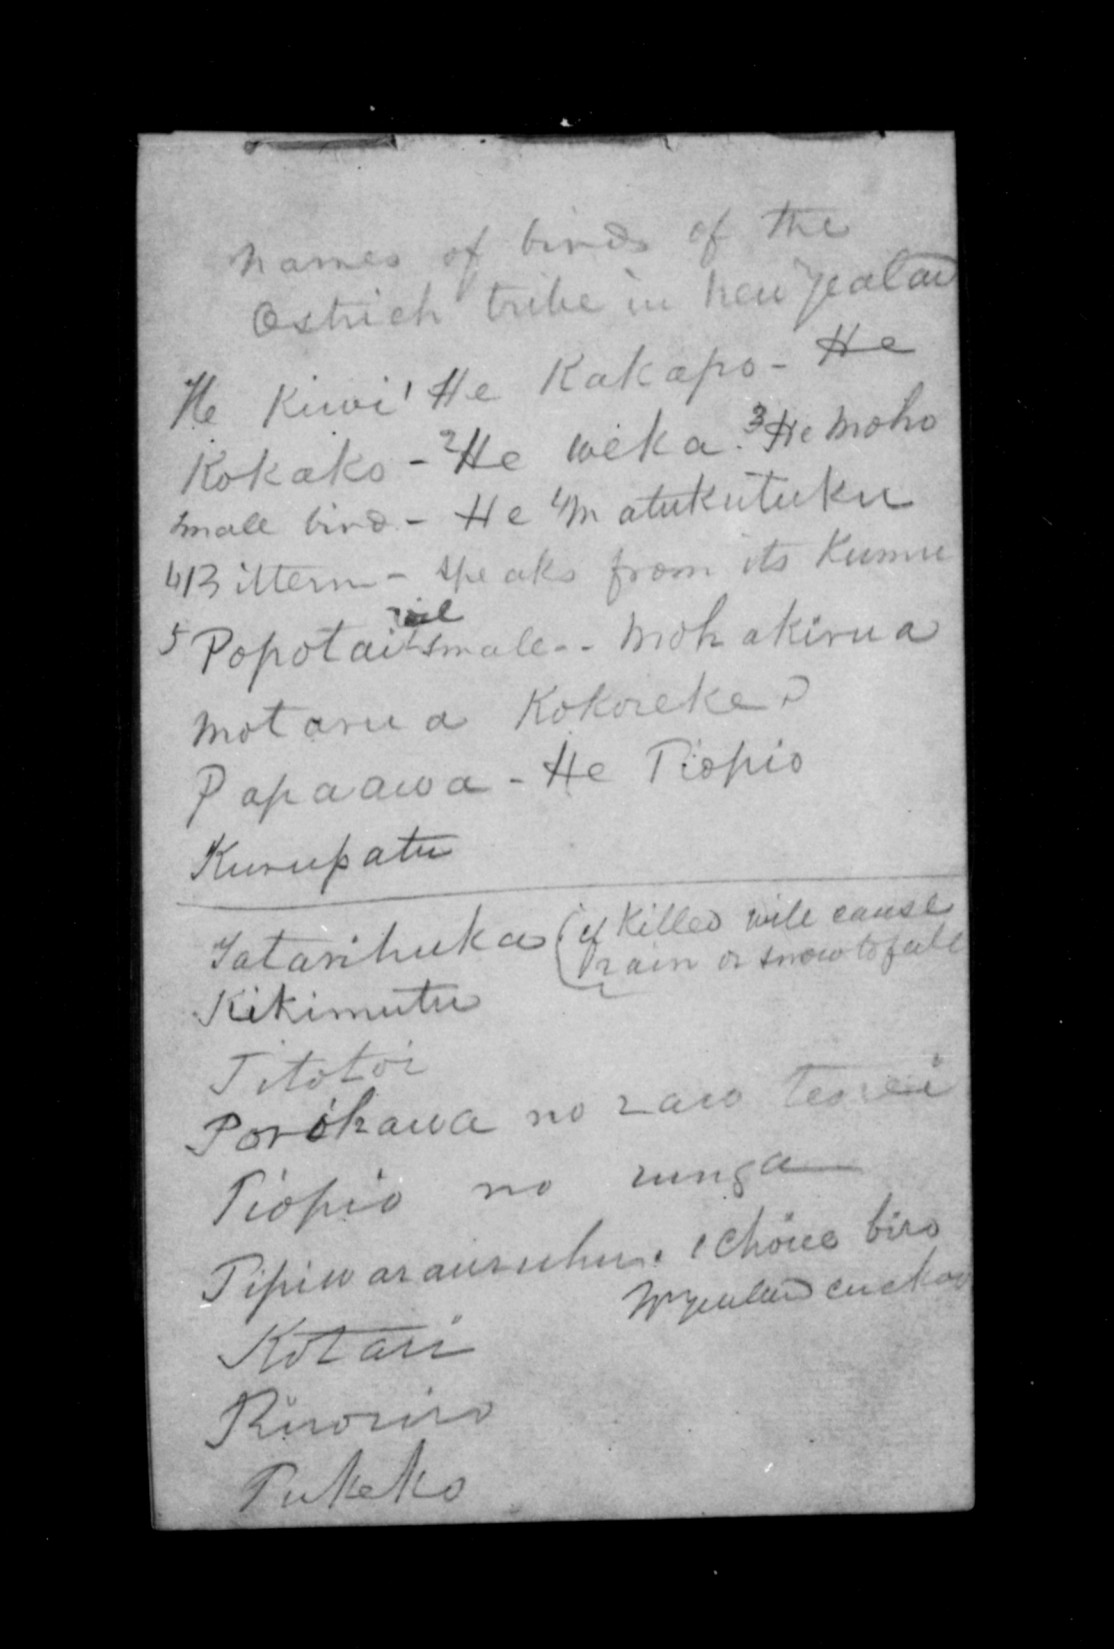 Names of birds of the
Ostrich tribe in New Zealand
He Kiwi 1 He Kakapo - He
Kokako - 2 He weka. 3 He Moho
small bird - He 4 Matukutuku
4 Bittern - speaks from its Kumu
5 Popotai rail small - - Mohakirua
Motarua Kokoreke ?
Papaawa - He Tiopio
Kurupatu
Tatarihuka (if Killed will cause
rain or snow to fall
Kikimutu
Titotoi
Porohawa no raro
Tiopio no runga
Pipiwarauruhu. choice bird
N Zealand cuckoo
Kotari
Riroriro
Pukeko